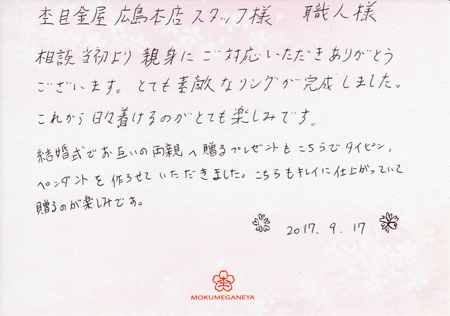 杢目金屋 広島本店 スタッフ様 職人様
相談当初より親身にご対応いただきありがとう
ございます。とても素敵なリングが完成しました。
これから日々着けるのがとても楽しみです。
結婚式でお互いの両親へ贈るプレゼントもこちらでタイピン、
ペンダントを作らせていただきました。こちらもキレイに仕上がっていて
贈るのが楽しみです。
2017. 9. 17
MOKUMEGANEYA